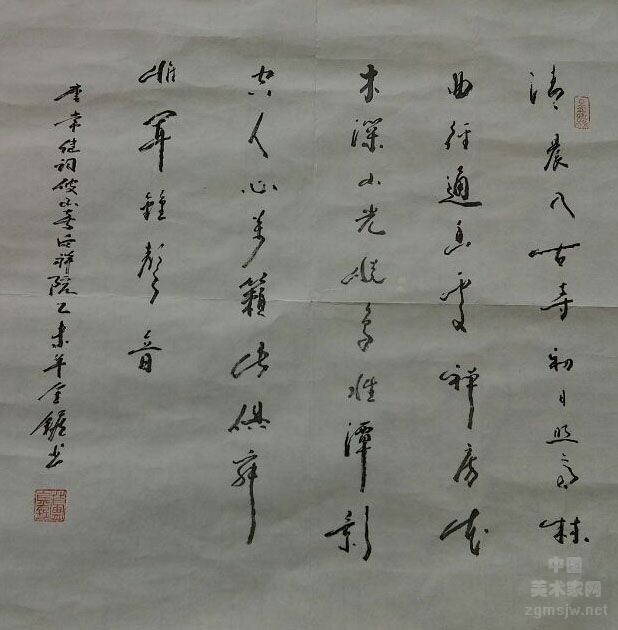 清晨入古寺初日照高林
曲徑通幽處禪房花
木深山光悦鸟性潭影
空人心万籟此俱寂
惟闻鐘聲音
常建詞破山寺后禅院乙未年金书
中国
美术家网
zgmsjw.net